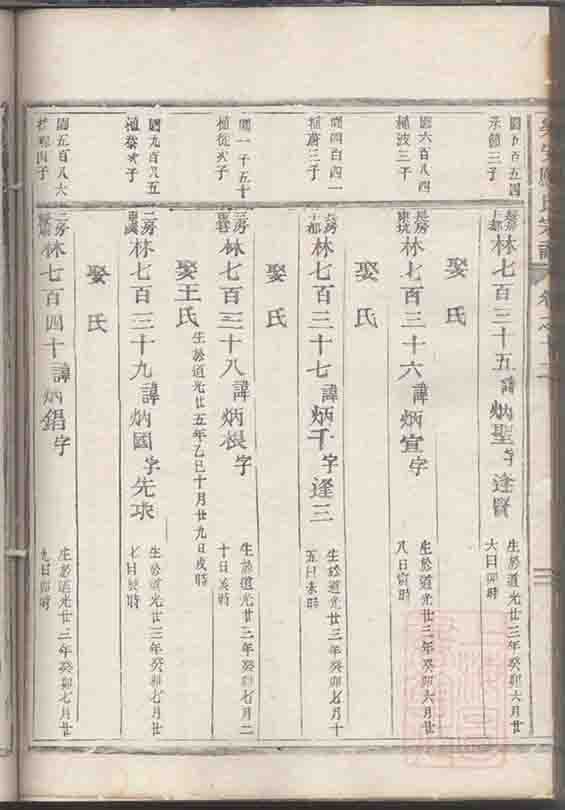 園五百五四
三子
長房
林七百三十五諱炳聖字逢賢
生於道光廿三年癸卯六月廿
六日卯時
娶氏
園六百八四
植波三子
長房
東坑
林七百三十六諱炳宣字
生於道光廿三年癸卯六月廿
八日寅時
娶氏
園四百四一
植蔚三子
房
上都
林七百三十七諱炳千字逢三
生於道光廿三年癸卯七月十
五日未時
娶氏
園一千五十
植從次子
房
林七百三十八諱炳根字
生於道光廿三年癸卯七月二
十日亥時
娶王氏
生於道光廿五年乙巳十月廿九日戌時
園九百八五
植榮次子
二房
林七百三十九諱炳國字先求
生於道光廿三年癸卯七月廿
七日亥時
娶氏
園五百八六
四子
二房
林七百四十諱炳錩字
生於道光廿三年癸卯七月廿
九日卯時